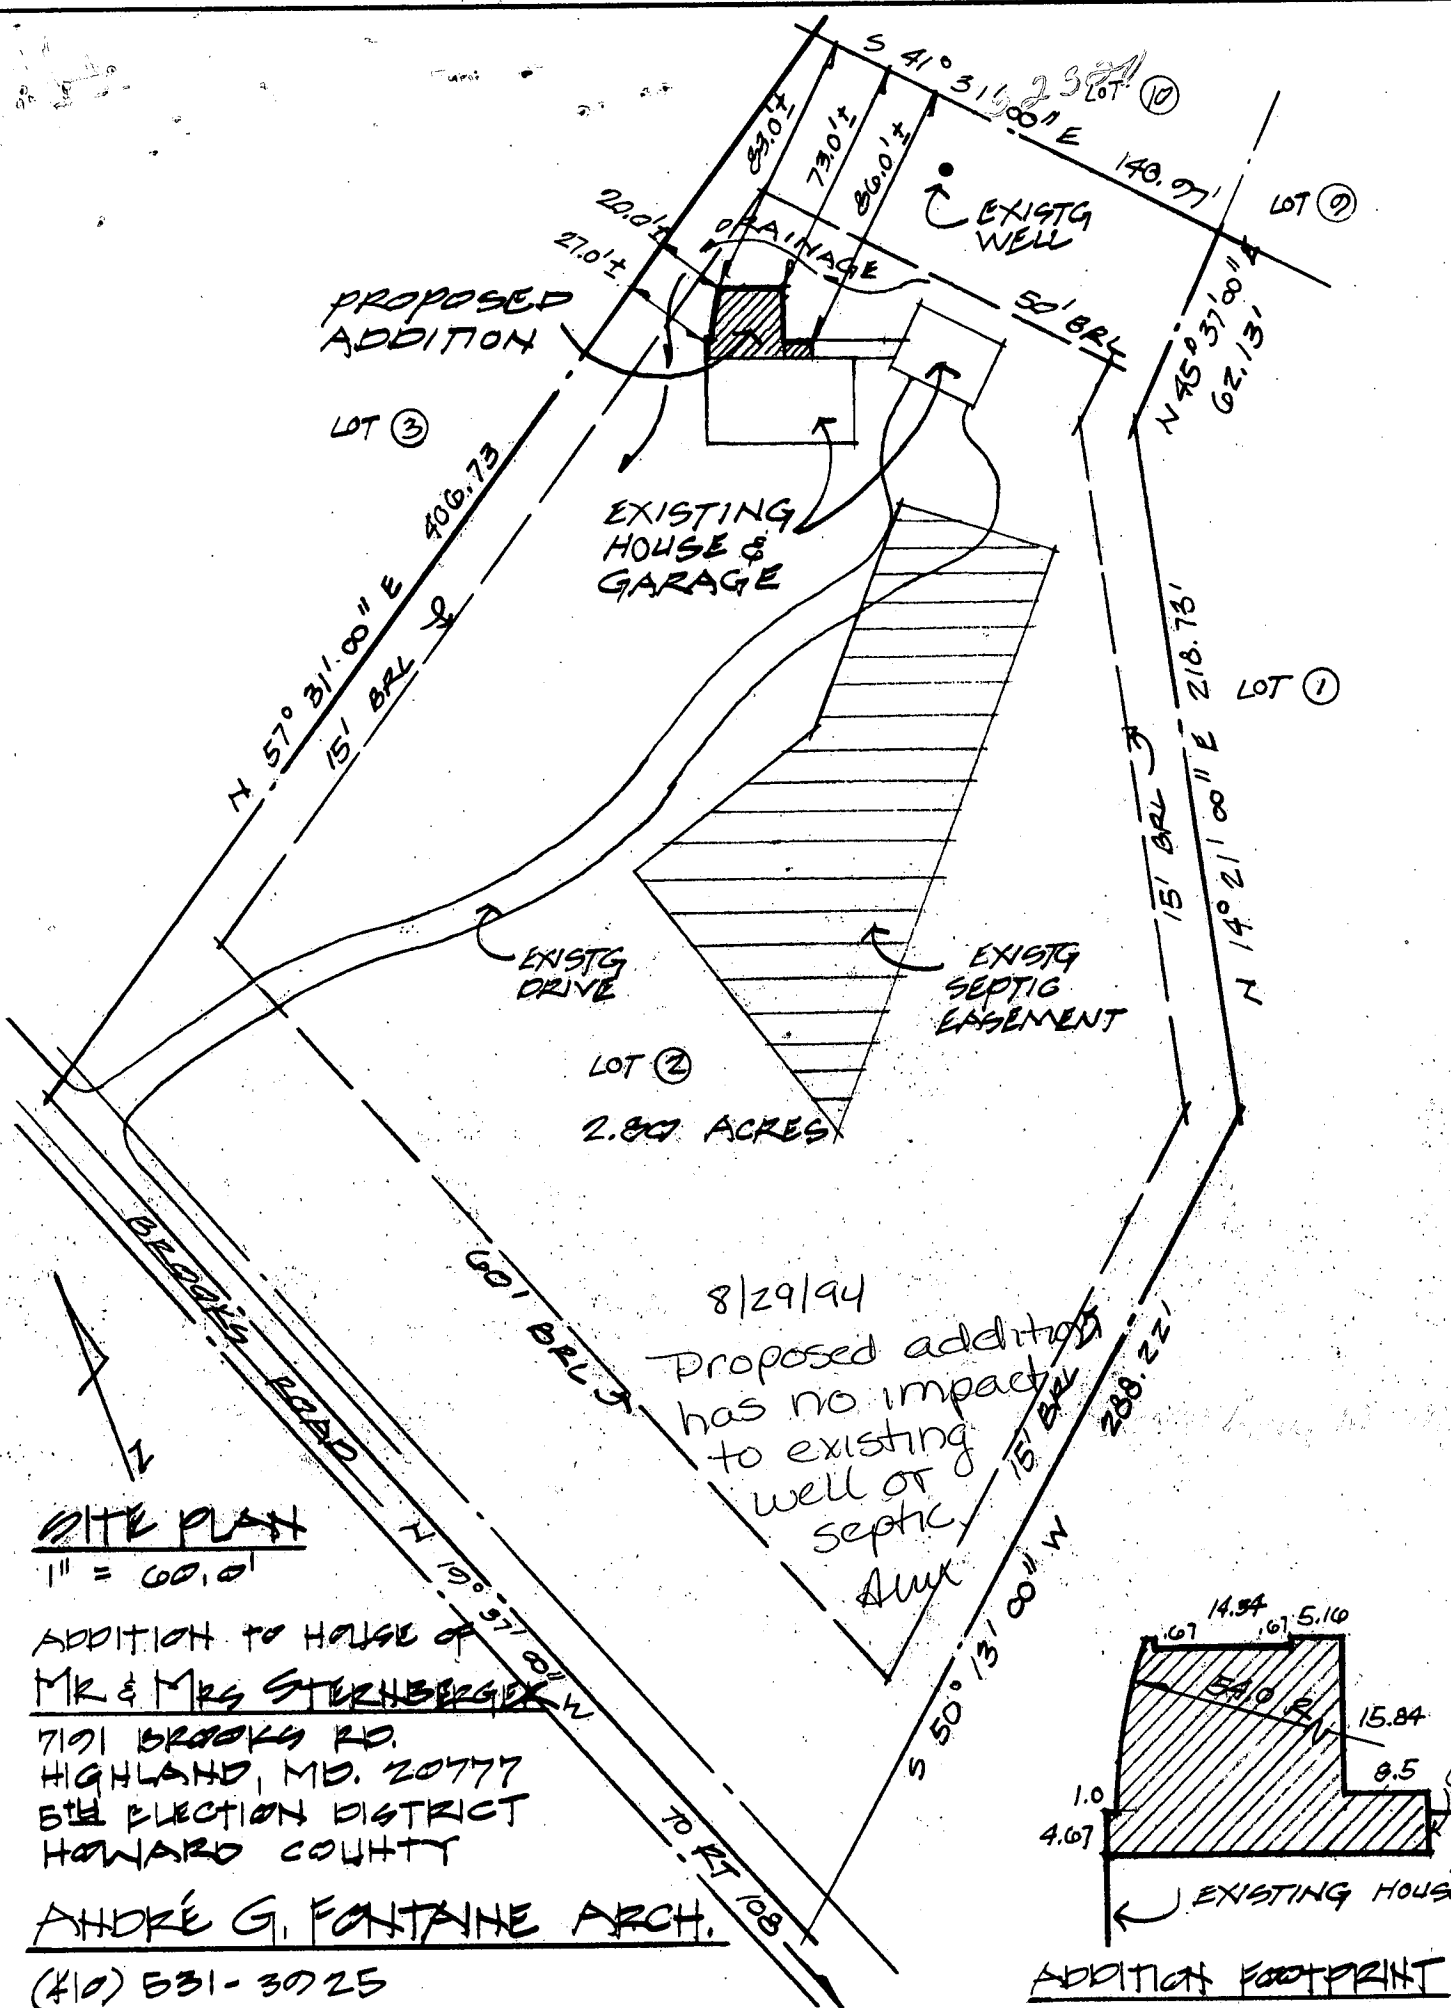 S 41° 31' 00" E
140.97'
LOT 10
LOT 9
83.0'±
73.0'±
86.0'±
20.0'±
27.0'±
DRAINAGE
EXISTG
WELL
50' BRL
N 45° 37' 00" E
62.13'
PROPOSED
ADDITION
LOT 3
406.73
N 57° 31' 00" E
15' BRL
EXISTING
HOUSE &
GARAGE
218.73'
N 14° 21' 00" E
LOT 1
15' BRL
EXISTG
DRIVE
EXISTG
SEPTIC
EASEMENT
LOT 2
ACRES
60' BRL
BROOKS ROAD
8/29/94
Proposed addition
has no impact
to existing
well or
septic
15' BRL
288.22'
S 50° 13' 00" W
N
SITE PLAN
1" = 60.0'
N 19° 37' 00" W
TO RT 108
ADDITION TO HOUSE OF
MR & MRS STERNBERGER
7191 BROOKS RD.
HIGHLAND, MD. 20777
5TH ELECTION DISTRICT
HOWARD COUNTY
ANDRÉ G. FONTAINE ARCH.
(410) 531-3925
14.34
.67
.67
5.16
54.0 R
15.84
8.5
1.0
4.67
EXISTING HOUS
ADDITION FOOTPRINT